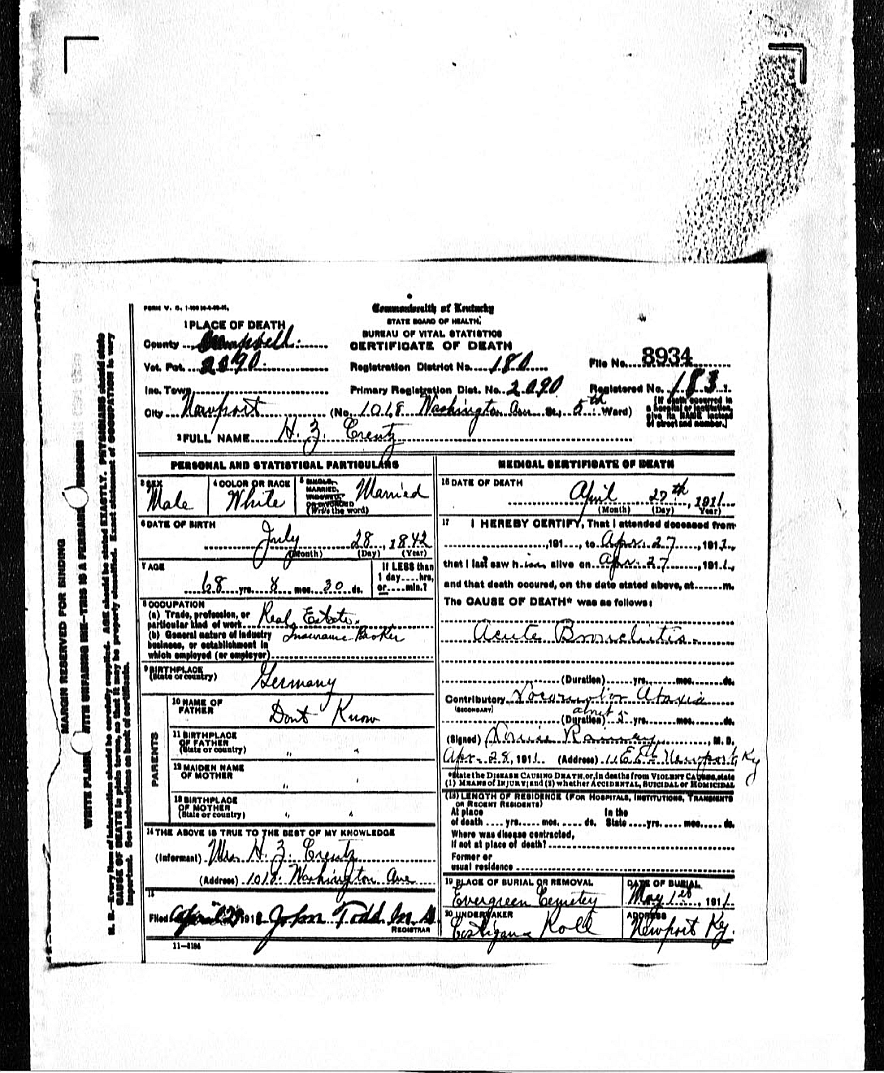 Commonwealth of Kentucky
STATE BOARD OF HEALTH.
BUREAU OF VITAL STATISTICS
CERTIFICATE OF DEATH
1 PLACE OF DEATH
County Campbell
Vot. Pct. 2090
Inc. Town
City Newport
Registration District No. 180
Primary Registration Dist. No. 2090
File No. 8934
Registered No. 183
(No. 1018 Washington Ave St.; 5th Ward)
[If death occurred in
a hospital or institution,
give its NAME instead
of street and number.]
2 FULL NAME H. Z. Crentz
PERSONAL AND STATISTICAL PARTICULARS
3 SEX
Male
4 COLOR OR RACE
White
5 SINGLE,
MARRIED,
WIDOWED,
OR DIVORCED
(Write the word)
Married
6 DATE OF BIRTH
July 28, 1842
(Month) (Day) (Year)
7 AGE
68 yrs. 8 mos. 30 ds.
If LESS than
1 day....hrs,
or....min.?
8 OCCUPATION
(a) Trade, profession, or
particular kind of work Real Estate
(b) General nature of industry
business, or establishment in
which employed (or employer)
Insurance Broker
9 BIRTHPLACE
(State or country) Germany
PARENTS
10 NAME OF
FATHER Dont Know
11 BIRTHPLACE
OF FATHER
(State or country) " "
12 MAIDEN NAME
OF MOTHER " "
13 BIRTHPLACE
OF MOTHER
(State or country) " "
14 THE ABOVE IS TRUE TO THE BEST OF MY KNOWLEDGE
(Informant) Mrs. H. Z. Crentz
(Address) 1018 Washington Ave
15
Filed April John Todd M.D.
REGISTRAR
11—3184
MEDICAL CERTIFICATE OF DEATH
16 DATE OF DEATH
April 27th, 1911
(Month) (Day) (Year)
17 I HEREBY CERTIFY, That I attended deceased from
, 191 , to Apr. 27, 1911,
that I last saw him alive on Apr. 27, 1911,
and that death occured, on the date stated above, at m.
The CAUSE OF DEATH* was as follows:
Acute Bronchitis
(Duration) yrs. mos. ds.
Contributory Locomotor Ataxia
(SECONDARY)
about
(Duration) yrs. mos. ds.
(Signed) , M. D.
Apr. 28, 1911 (Address) Newport Ky
*State the DISEASE CAUSING DEATH, or, in deaths from VIOLENT CAUSES, state
(1) MEANS OF INJURY; and (2) whether ACCIDENTAL, SUICIDAL or HOMICIDAL
(18) LENGTH OF RESIDENCE (FOR HOSPITALS, INSTITUTIONS, TRANSIENTS
OR RECENT RESIDENTS)
At place In the
of death yrs. mos. ds. State yrs. mos. ds.
Where was disease contracted,
if not at place of death?
Former or
usual residence
19 PLACE OF BURIAL OR REMOVAL
Evergreen Cemetery
DATE OF BURIAL
May 1st, 1911
20 UNDERTAKER
Costigan
ADDRESS
Newport Ky.
MARGIN RESERVED FOR BINDING